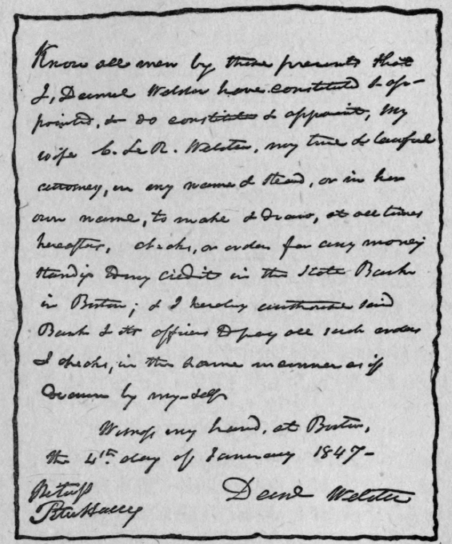 Know all men by these presents that
I, Daniel Webster have constituted & ap-
pointed, & do constitute & appoint, my
wife C. Le R. Webster, my true & lawful
attorney, in my name & stead, or in her
own name, to make & draw, at all times
hereafter, checks, or orders for any money
standing to my credit in the State Bank
in Boston; & I hereby authorise said
Bank & its officers to pay all such orders
& checks, in the same manner as if
drawn by myself.
Witness my hand, at Boston,
the 4th day of January 1847-
Witness
Daniel Webster